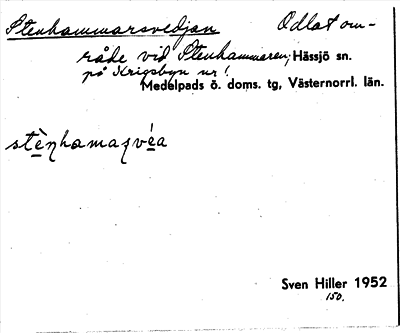 Stenhammarsvedjan Odlat om-
råde vid Stenhammaren, Hässjö sn.
på Krigsbyn nr 1.
Medelpads ö. doms. tg, Västernorrl. län.
stènhamaʀvéa
Sven Hiller 1952
150.